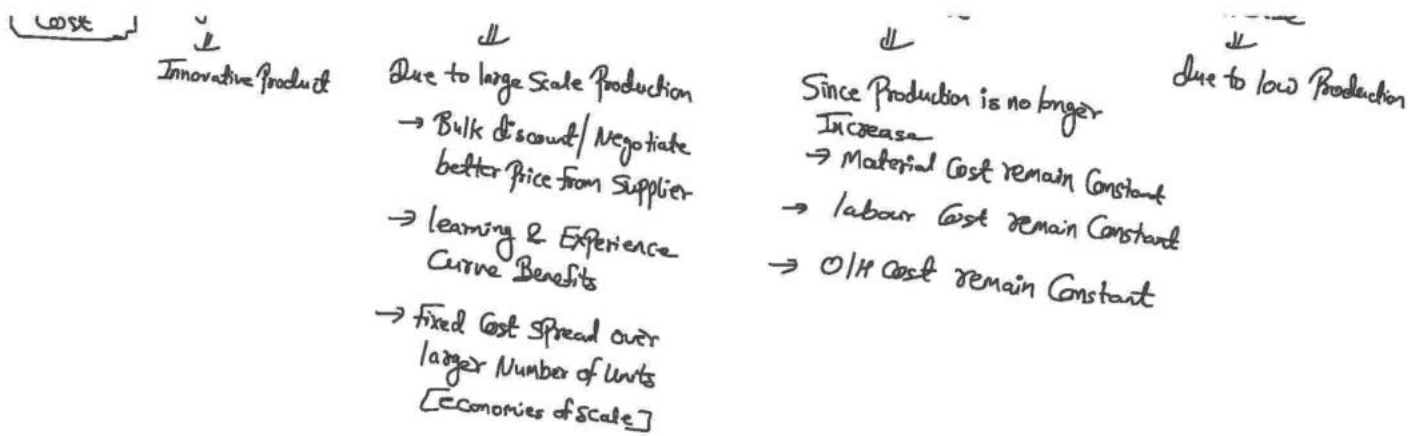 Cost
Innovative Product
Due to large Scale Production
→ Bulk discount/Negotiate
better Price from Supplier
→ learning & Experience
Curve Benefits
→ fixed Cost Spread over
larger Number of Units
[economies of scale]
Since Production is no longer
Increase
→ Material Cost remain Constant
→ labour Cost remain Constant
→ O/H Cost remain Constant
due to low Production